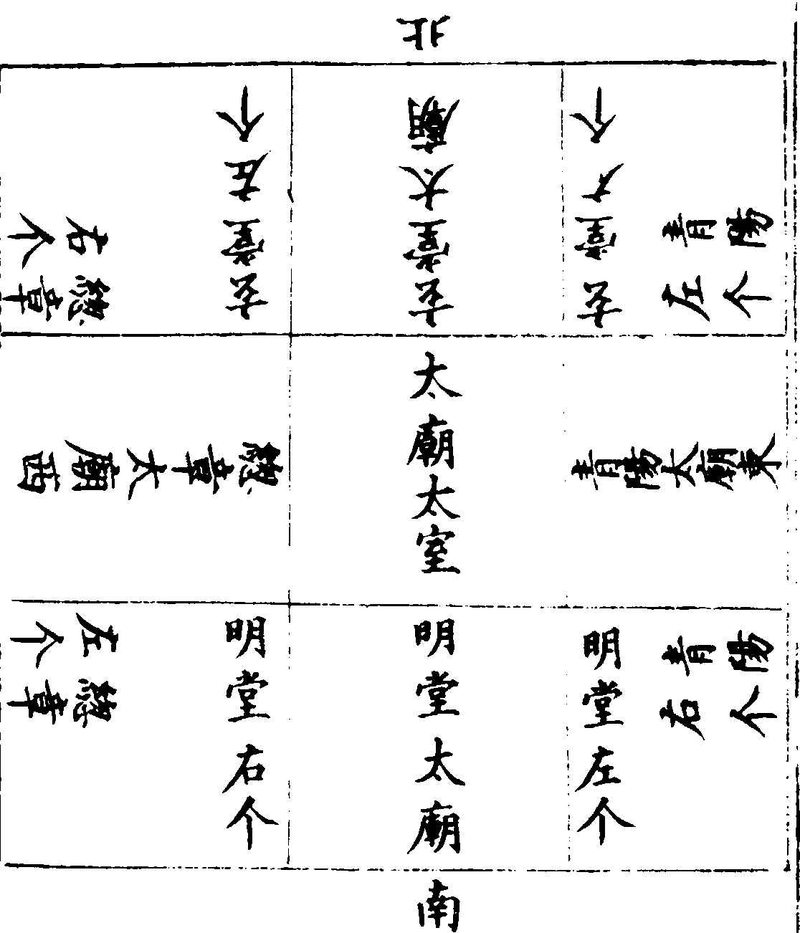 北
緫章
右个
玄堂左个
玄堂大廟
玄堂大个
青陽
左个
緫章大廟西
太廟太室
青陽太廟東
緫章
左个
明堂右个
明堂太廟
明堂左个
青陽
右个
南